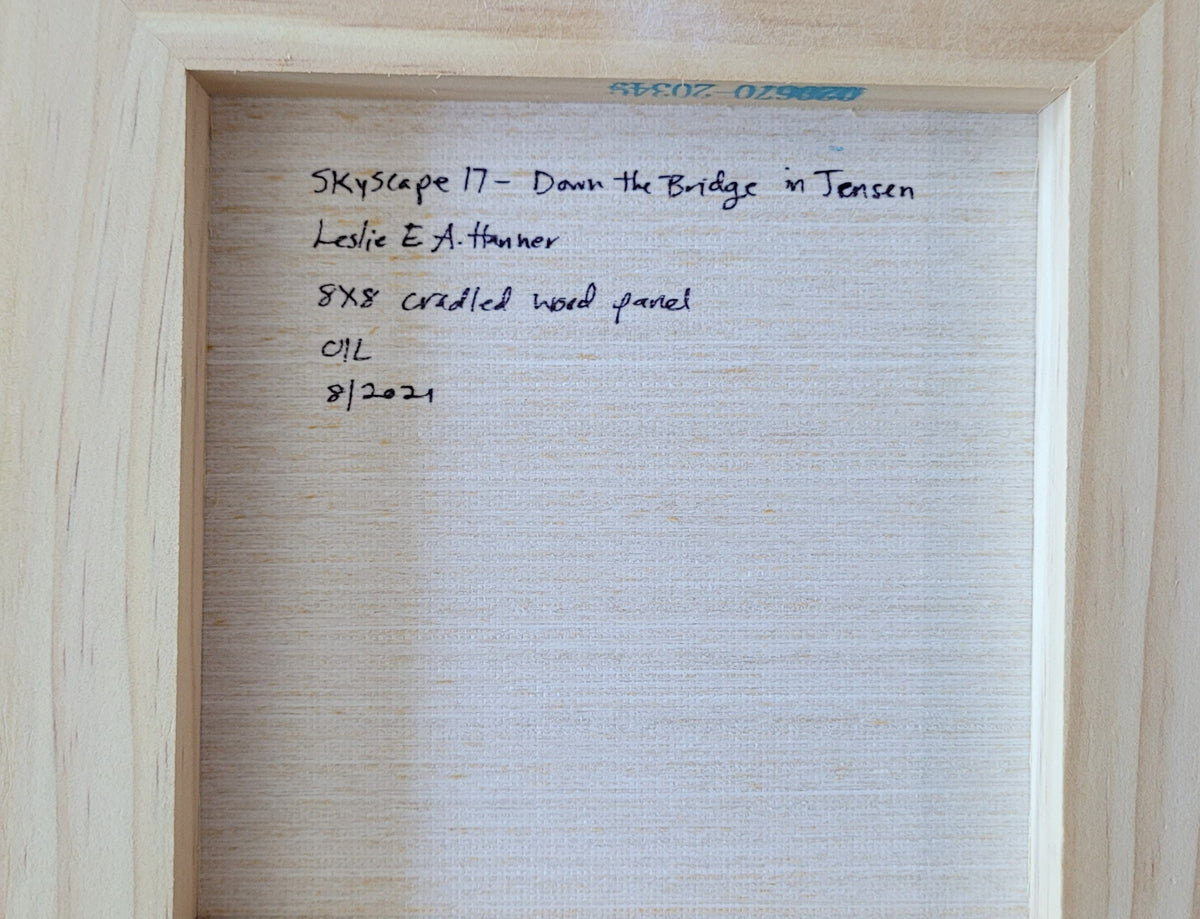 Skyscape 17 - Down the Bridge in Jensen
Leslie E A. Hanner
8X8 cradled wood panel
OIL
8/2021